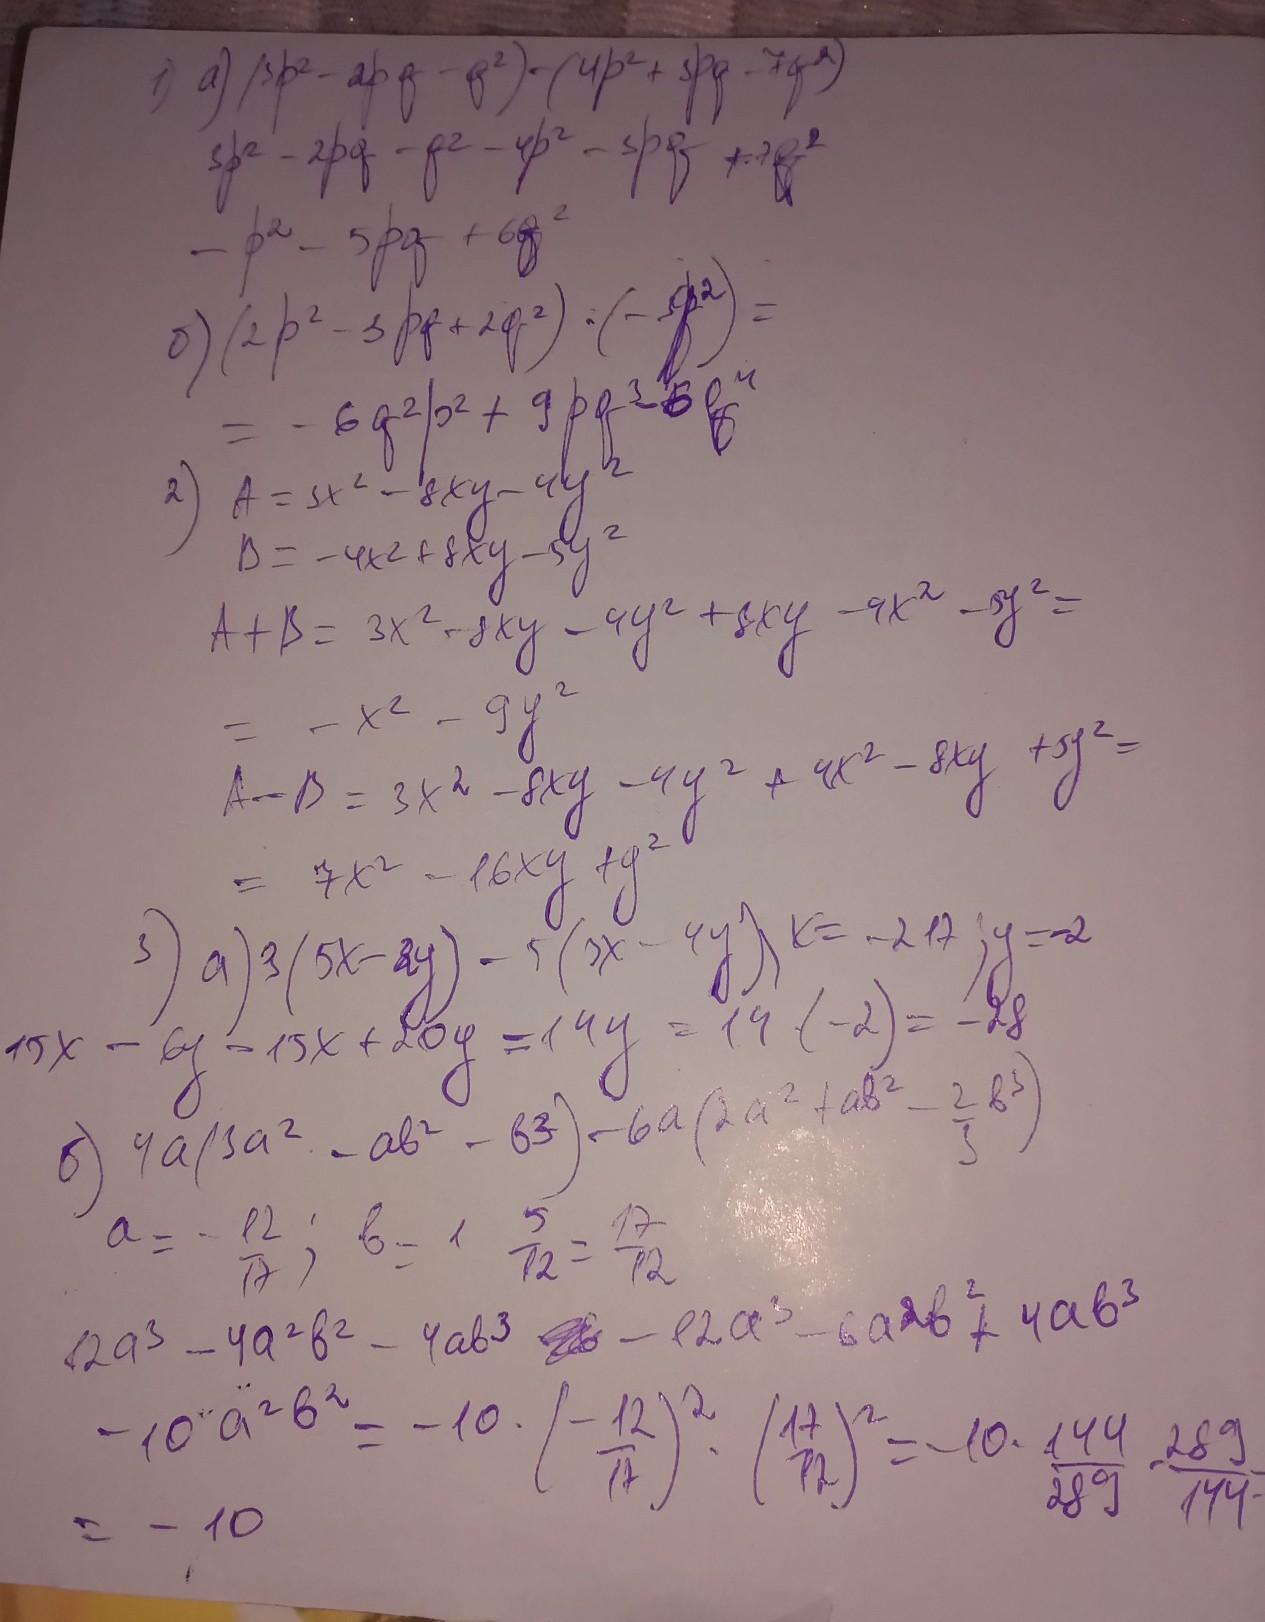 1) а) (3p² - 2pq - q²) - (4p² + 3pq - 7q²)
3p² - 2pq - q² - 4p² - 3pq + 7q²
- p² - 5pq + 6q²
б) (2p² - 3pq + 2q²) · (-3q²) =
= - 6q²p² + 9pq³ - 6q⁴
2) A = 3x² - 8xy - 4y²
B = -4x² + 8xy - 5y²
A + B = 3x² - 8xy - 4y² + 8xy - 4x² - 5y² =
= - x² - 9y²
A - B = 3x² - 8xy - 4y² + 4x² - 8xy + 5y² =
= 7x² - 16xy + y²
3) а) 3(5x - 2y) - 5(3x - 4y), x = -217; y = -2
15x - 6y - 15x + 20y = 14y = 14 · (-2) = -28
б) 4a(3a² - ab² - b³) - 6a(2a² + ab² - 2/3 b³)
a = - 12/17; b = 1 5/12 = 17/12
12a³ - 4a²b² - 4ab³ - 12a³ - 6a²b² + 4ab³
-10 a²b² = -10 · (- 12/17)² · (17/12)² = -10 · 144/289 · 289/144
= - 10